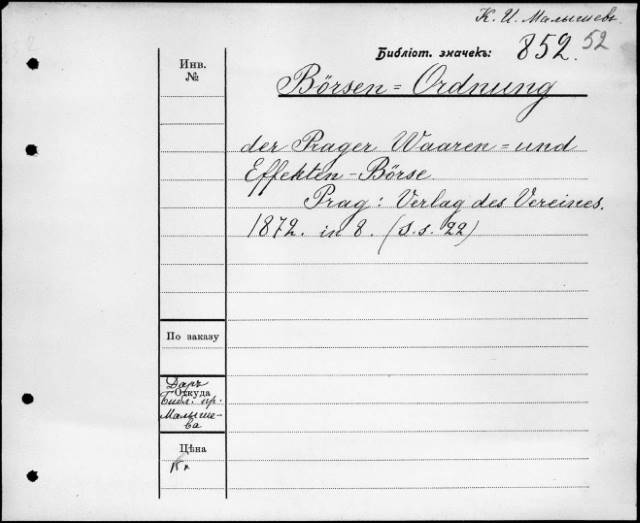 К. И. Малышевъ.
Библіот. значекъ: 852. 52
Инв.
№
Börsen = Ordnung
der Prager Waaren = und
Effekten - Börse.
Prag: Verlag des Vereines.
1872. in 8. (S.s. 22)
По заказу
Откуда
Даръ
Библ. пр.
Малыше-
ва
Цѣна